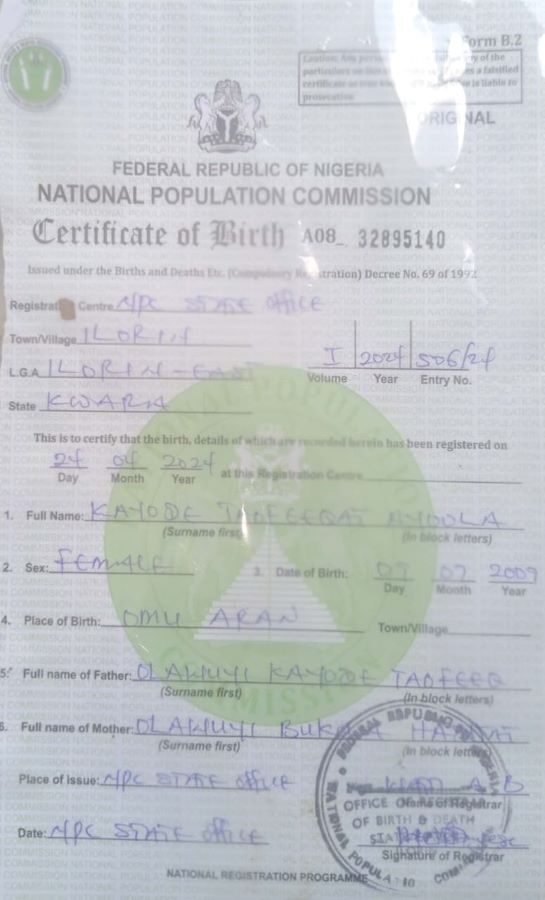 Form B.2
Caution: Any of the
particulars a falsified
certificate is liable to
prosecution
ORIGINAL
FEDERAL REPUBLIC OF NIGERIA
NATIONAL POPULATION COMMISSION
Certificate of Birth A08_ 32895140
Issued under the Births and Deaths Etc. (Compulsory Registration) Decree No. 69 of 1992
Registration Centre NPC STATE OFFICE
Town/Village ILORIN
L.G.A ILORIN-EAST
I 2024 506/24
Volume Year Entry No.
State KWARA
This is to certify that the birth, details of which are recorded herein has been registered on
24 04 2024 at this Registration Centre
Day Month Year
1. Full Name: KAYODE TAOFEEQAT AYOOLA
(Surname first) (In block letters)
2. Sex: FEMALE 3. Date of Birth: 07 2009
Day Month Year
4. Place of Birth: OMU ARAN Town/Village
5. Full name of Father: OLAWUYI KAYODE TAOFEEQ
(Surname first) (In block letters)
6. Full name of Mother: OLAWUYI
(Surname first) (In block letters)
Place of Issue: NPC STATE OFFICE
Name of Registrar
Date: NPC STATE OFFICE
Signature of Registrar
FEDERAL REPUBLIC NIGERIA
OFFICE
OF BIRTH & DEATH
NATIONAL POPULATION
NATIONAL REGISTRATION PROGRAMME